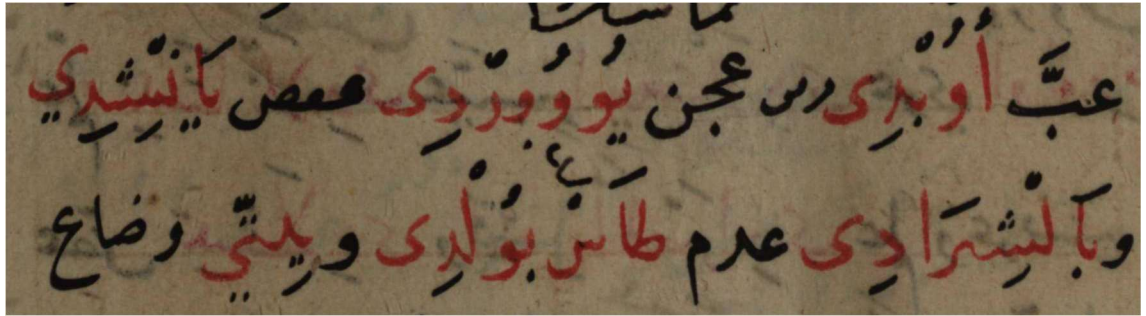 عبَّ أُوُبْدِى درس عجن يُووُورْدِى معص يَانِْشِدِي
وبَالْشِرَادِى عدم طَاسْ بُولْدِى ويِيتّي وضاع